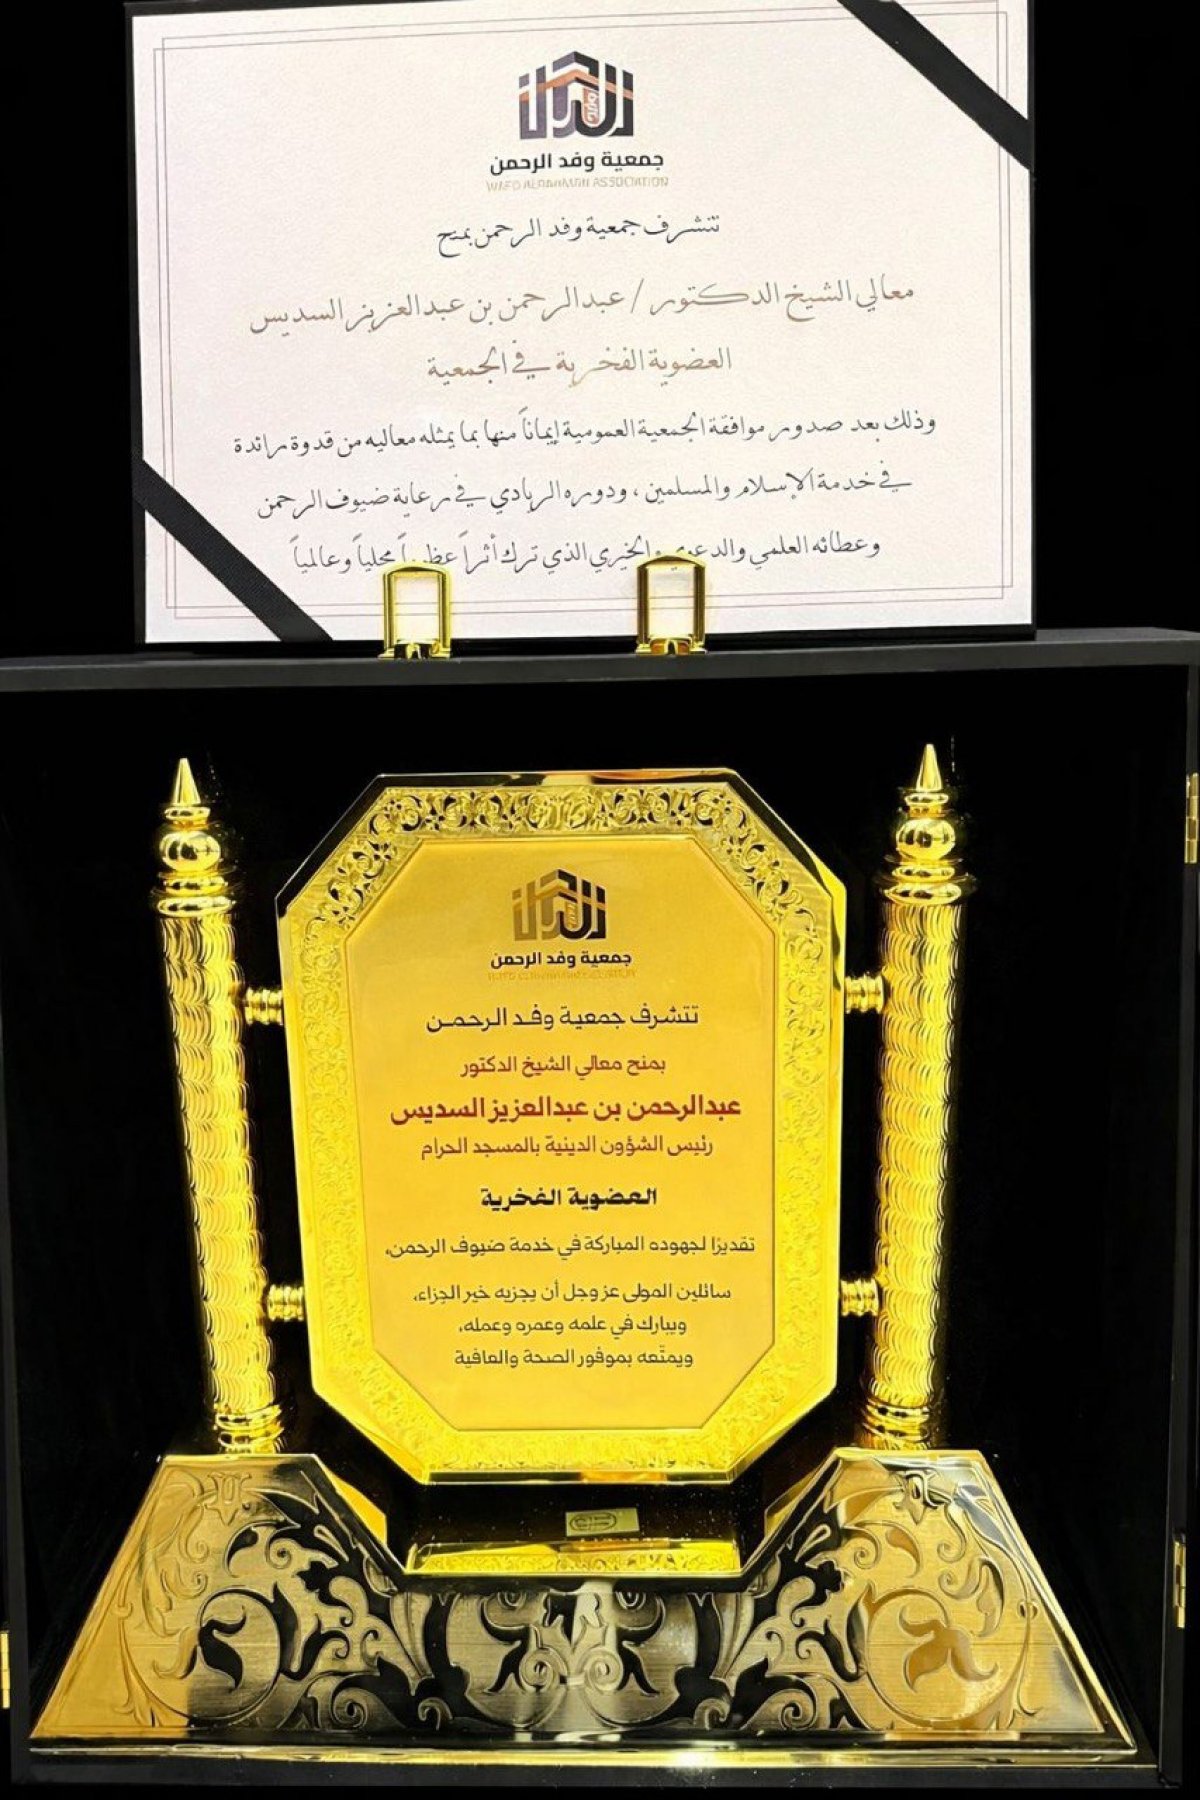 جمعية وفد الرحمن
WAFD ALRAHMAN ASSOCIATION
تتشرف جمعية وفد الرحمن بمنح
معالي الشيخ الدكتور / عبدالرحمن بن عبدالعزيز السديس
العضوية الفخرية في الجمعية
وذلك بعد صدور موافقة الجمعية العمومية إيماناً منها بما يمثله معاليه من قدوة رائدة
في خدمة الإسلام والمسلمين ، ودوره الريادي في رعاية ضيوف الرحمن
وعطائه العلمي والدعوي والخيري الذي ترك أثراً عظيماً محلياً وعالمياً
جمعية وفد الرحمن
WAFD ALRAHMAN ASSOCIATION
تتشرف جمعية وفد الرحمن
بمنح معالي الشيخ الدكتور
عبدالرحمن بن عبدالعزيز السديس
رئيس الشؤون الدينية بالمسجد الحرام
العضوية الفخرية
تقديرًا لجهوده المباركة في خدمة ضيوف الرحمن،
سائلين المولى عز وجل أن يجزيه خير الجزاء،
ويبارك في علمه وعمره وعمله،
ويمتّعه بموفور الصحة والعافية